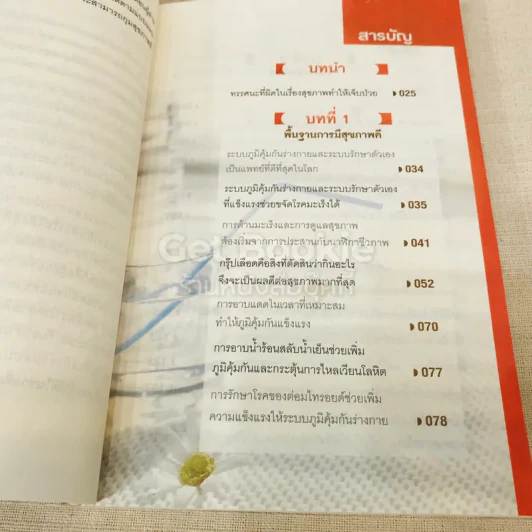 สารบัญ
บทนำ
ทรรศนะที่ผิดในเรื่องสุขภาพทำให้เจ็บป่วย 025
บทที่ 1
พื้นฐานการมีสุขภาพดี
ระบบภูมิคุ้มกันร่างกายและระบบรักษาตัวเอง
เป็นแพทย์ที่ดีที่สุดในโลก 034
ระบบภูมิคุ้มกันร่างกายและระบบรักษาตัวเอง
ที่แข็งแรงช่วยขจัดโรคมะเร็งได้ 035
การต้านมะเร็งและการดูแลสุขภาพ
ต้องเริ่มจากการประสานกับนาฬิกาชีวภาพ 041
กรุ๊ปเลือดคือสิ่งที่ตัดสินว่ากินอะไร
จึงจะเป็นผลดีต่อสุขภาพมากที่สุด 052
การอาบแดดในเวลาที่เหมาะสม
ทำให้ภูมิคุ้มกันแข็งแรง 070
การอาบน้ำร้อนสลับน้ำเย็นช่วยเพิ่ม
ภูมิคุ้มกันและกระตุ้นการไหลเวียนโลหิต 077
การรักษาโรคของต่อมไทรอยด์ช่วยเพิ่ม
ความแข็งแรงให้ระบบภูมิคุ้มกันร่างกาย 078